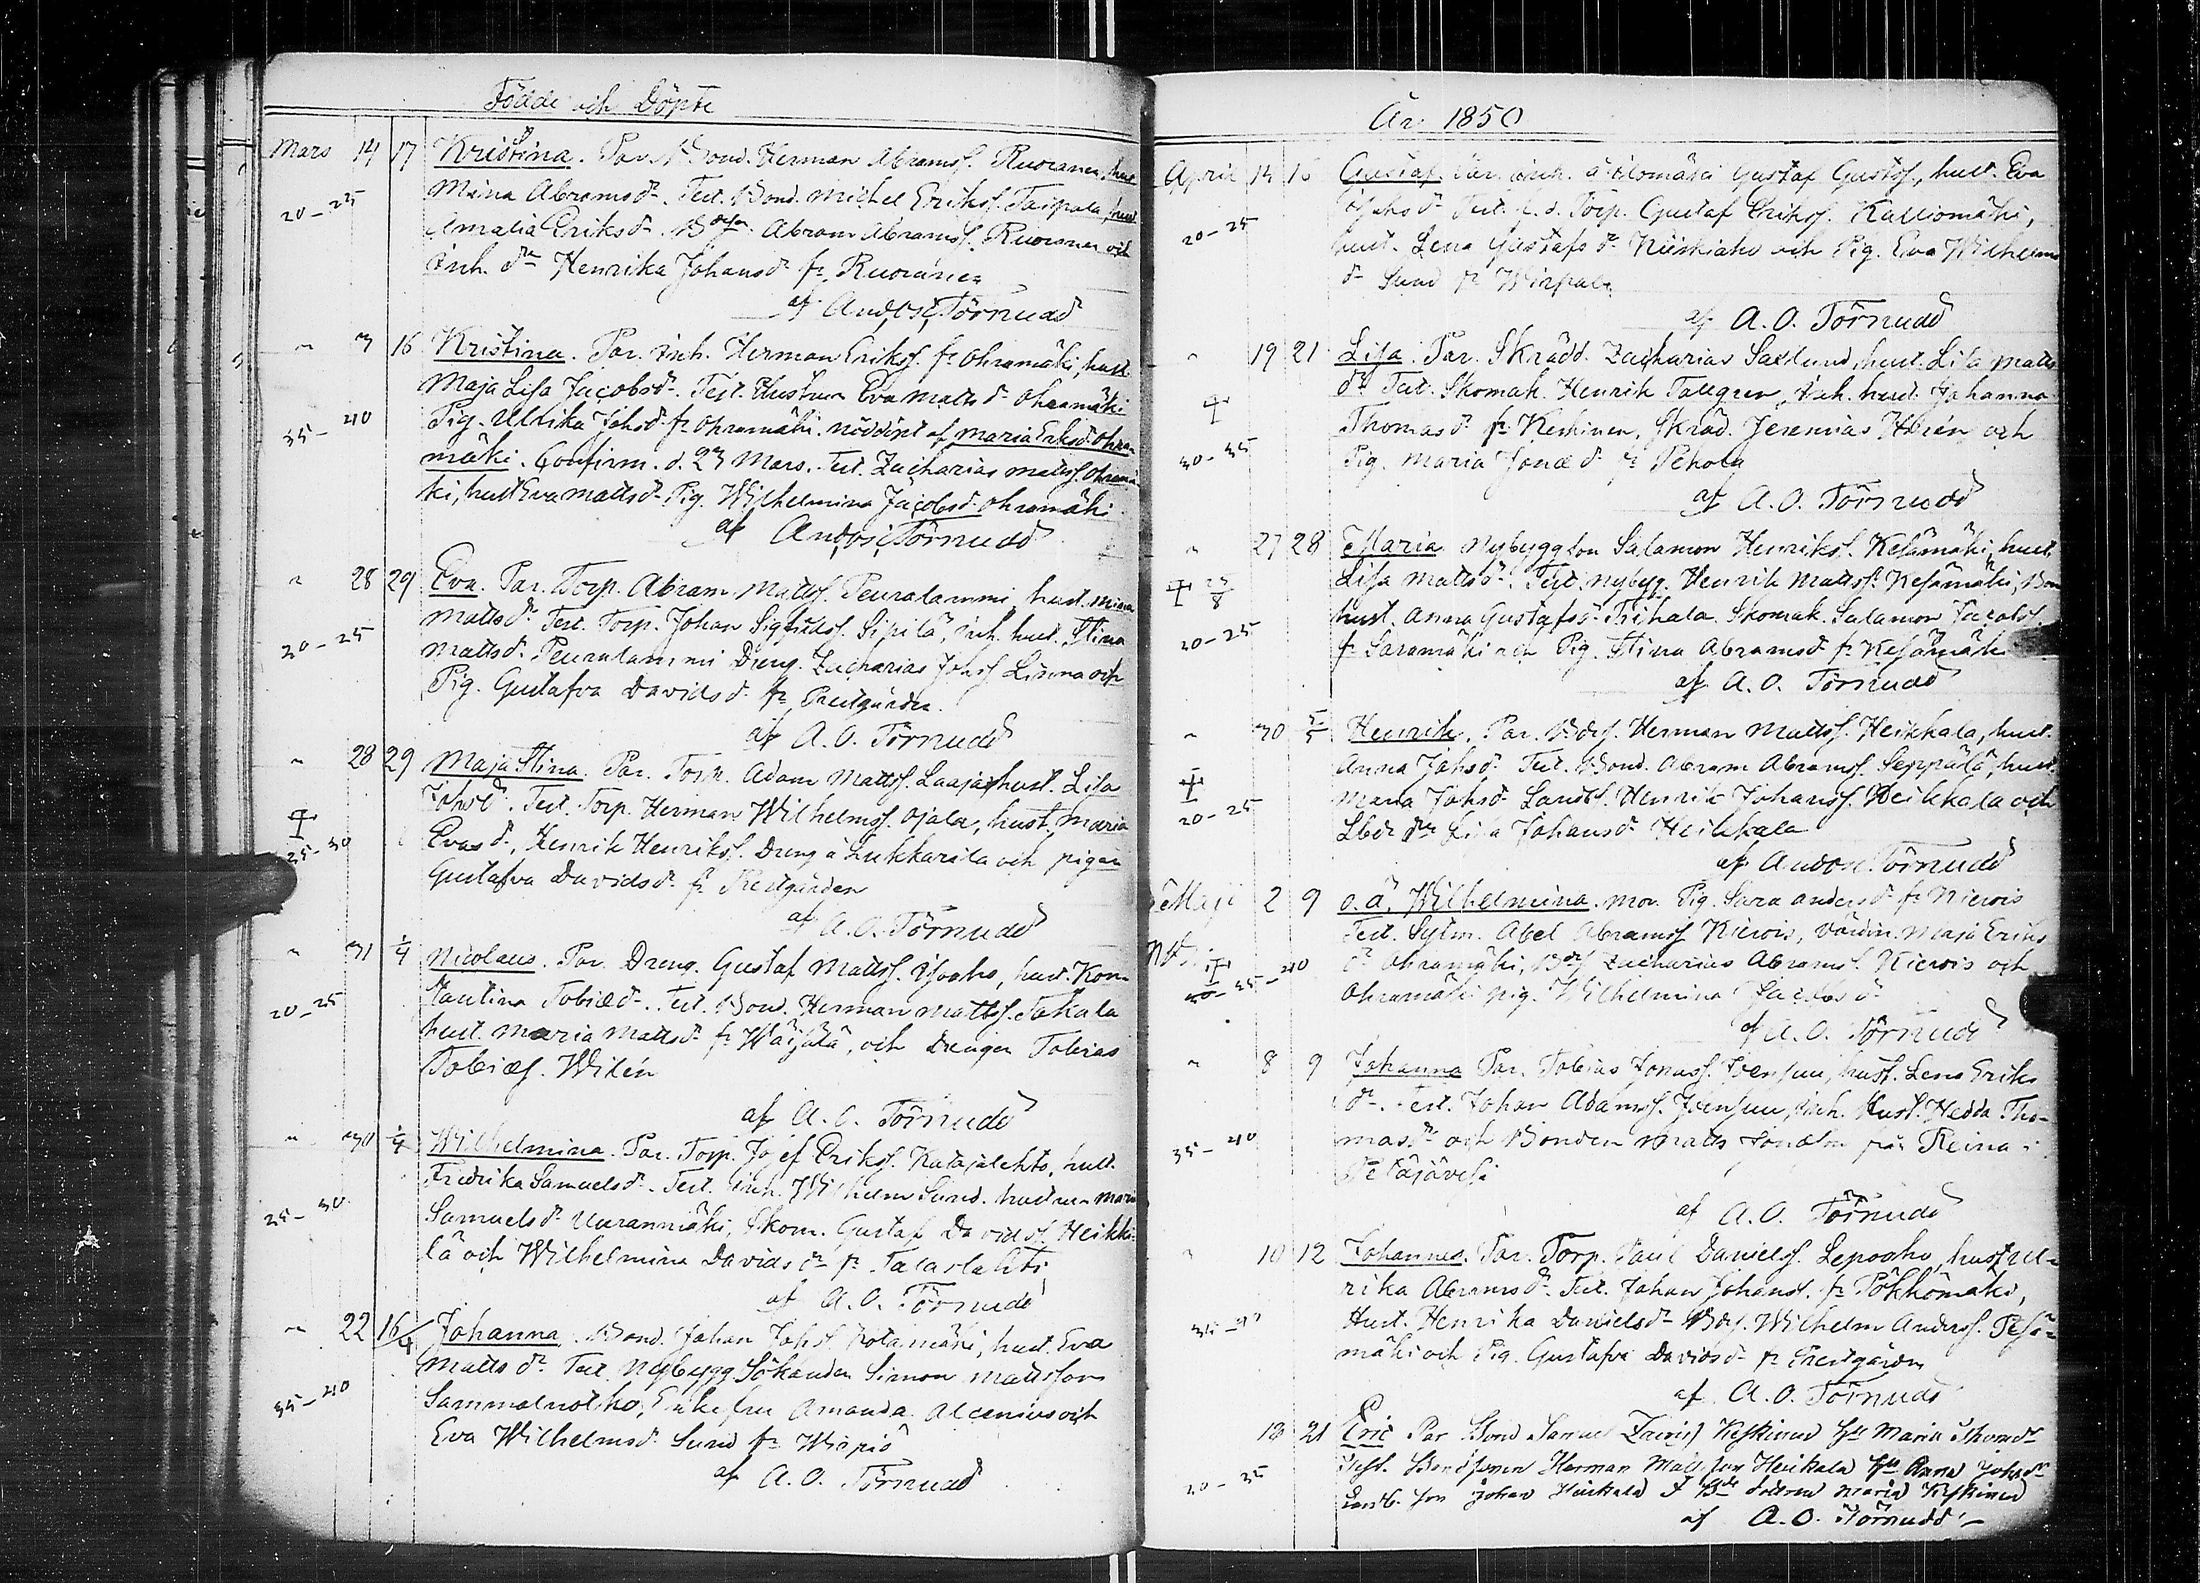 Födde och Döpte
Mars 14 17 Kristina. Par. Bond. Herman Abramss. Ruoranen, hust
Mina Abramsdr. Test. Bond. Michel Erikss. Taipala, hust
20-25 Amalia Eriksdr. Abram Abramss. Ruoranen och
Inh. dr Henrika Johansdr fr. Ruoranen
af Andos. Törnudd
" 3 16 Kristina. Par. Inh. Herman Erikss. fr. Ohramäki, hust.
Maja Lisa Jacobsdr. Test. Hustrun Eva Mattsdr Ohramäki
35-40 Pig. Ulrika Johsdr fr Ohramäki. nöddöpt af Maria Eriksdr Ohra-
mäki. Confirm. d. 23 Mars. Test. Zacharias Mattss. Ohramä
ki, hust Eva Mattsdr. Pig. Wilhelmina Jacobsdr Ohramäki
af Andos. Törnudd
" 28 29 Eva. Par. Torp. Abram Mattss. Peuralammi hust. Mina
Mattsdr. Test. Torp. Johan Sigfridss. Sipilä, inh. hust. Stina
20-25 Mattsdr. Peuralammi Dreng. Zacharias Johss Linna och
Pig. Gustafva Davidsdr. fr. Prestgården.
af A. O. Törnudd
" 28 29 Maja Stina. Par. Torp. Adam Mattss. Laaja, hust. Lisa
Johsdr. Test. Torp. Herman Wilhelmss. Ojala, hust. Maria
25-30 Evasdr, Henrik Henrikss. Dreng å Lukkarila och pigan
Gustafva Davidsdr. fr Prestgården
af A. O. Törnudd
" 31 1/4 Nicolaus. Par. Dreng. Gustaf Mattss. hust. Kon-
stantina Tobiædr. Test. Bond. Herman Mattss. Tokala
20-25 hust. Maria Mattsdr fr Wäijälä, och Drengen Tobias
Tobiæs. Widén
af A. O. Törnudd
" 30 1/4 Wilhelmina. Par. Torp. Josef Erikss. Katajalehto, hust.
Fredrika Samuelsdr. Test. Inh. Wilhelm Sund. hustrun Maria
25-30 Samuelsdr Uuranmäki, Skom. Gustaf Davidss. Heikki-
lä och Wilhelmina Davidsdr fr. Talaslahti
af A. O. Törnudd
" 22 16/4 Johanna. Bond. Johan Johss. Kotamäki, hust. Eva
Mattsdr. Test. Nybygg Sökanden Simon Mattsson
35-40 Sammalnotko, Enkefru Amanda Alcenius och
Eva Wilhelmsdr. Sund fr Wirpiö
af A. O. Törnudd
År 1850
April 14 16 Gustaf. Par. Inh. å Gustaf Gustss., hust. Eva
Johsdr Test. f. d. Torp. Gustaf Erikss. Kalliomäki,
20-25 hust. Lena Gustafsdr och Pig. Eva Wilhelms
dr Sund fr Wirpala
af A. O. Törnudd
" 19 21 Lisa. Par. Skrädd. Zacharias Saxlund, hust. Lisa Matts
dr. Test. Skomak. Henrik Tallgren, Inh. hust. Johanna
30-35 Thomasdr fr Keskinen, Skräd. Jeremias Horén och
Pig. Maria Jonædr fr Pehola
af A. O. Törnudd
" 27 28 Maria. Nybyggson Salamon Henrikss. Kesämäki, hust.
23/8 Lisa Mattsdr. Test. Nybygg. Henrik Mattss. Kesämäki, Bon
20-25 hust. Anna Gustafsdr Trihala. Skomak. Salamon Jacobss.
fr Saramäki och Pig. Stina Abramsdr fr Kesämäki
af A. O. Törnudd
" 30 5/5 Henrik. Par. Bds. Herman Mattss. Heikkala, hust.
Anna Johsdr Test. Bond. Abram Abramss. Seppälä, hust.
20-25 Maria Johsdr Landb. Henrik Johanss. Heikkala och
Lbdr dr Lisa Johansdr Heikkala
af Andos. Törnudd
Maji 2 9 o. ä. Wilhelmina. mor. Pig. Sara Andersdr fr Nierois
Test. Sytn. Abel Abramss Nierois, värdin. Maja Eriks
25-40 dr Ohramäki, Bds Zacharias Abramss. Nierois och
Ohramäki pig. Wilhelmina Jacobsdr.
af A. O. Törnudd
" 8 9 Johanna Par. Tobias Jonass. Joensuu, hust. Lena Eriks
dr. Test. Johan Adamss. Joensuu, Inh. Hust. Hedda Tho-
35-40 masdr och Bonden Matts Jonæson från Reina i
Petäjävesi
af A. O. Törnudd
" 10 12 Johannes. Par. Torp. Paul Danielss. Lepoaho, hust Ul-
rika Abramsdr. Test. Johan Johanss. fr Pökkömäki,
Hust. Henrika Danielsdr Bds. Wilhelm Anderss. Pesä-
mäki och Pig. Gustafva Davidsdr fr Prestgården
af A. O. Törnudd
13 21 Eric Par Bond Samuel Keskinen hu Maria Thomdr
Test. Bondsonen Herman Matsson Heikala hu Anna Johsdr
Landb. son Johan Heikala & dottren Maria Keskinen
af A. O. Törnudd